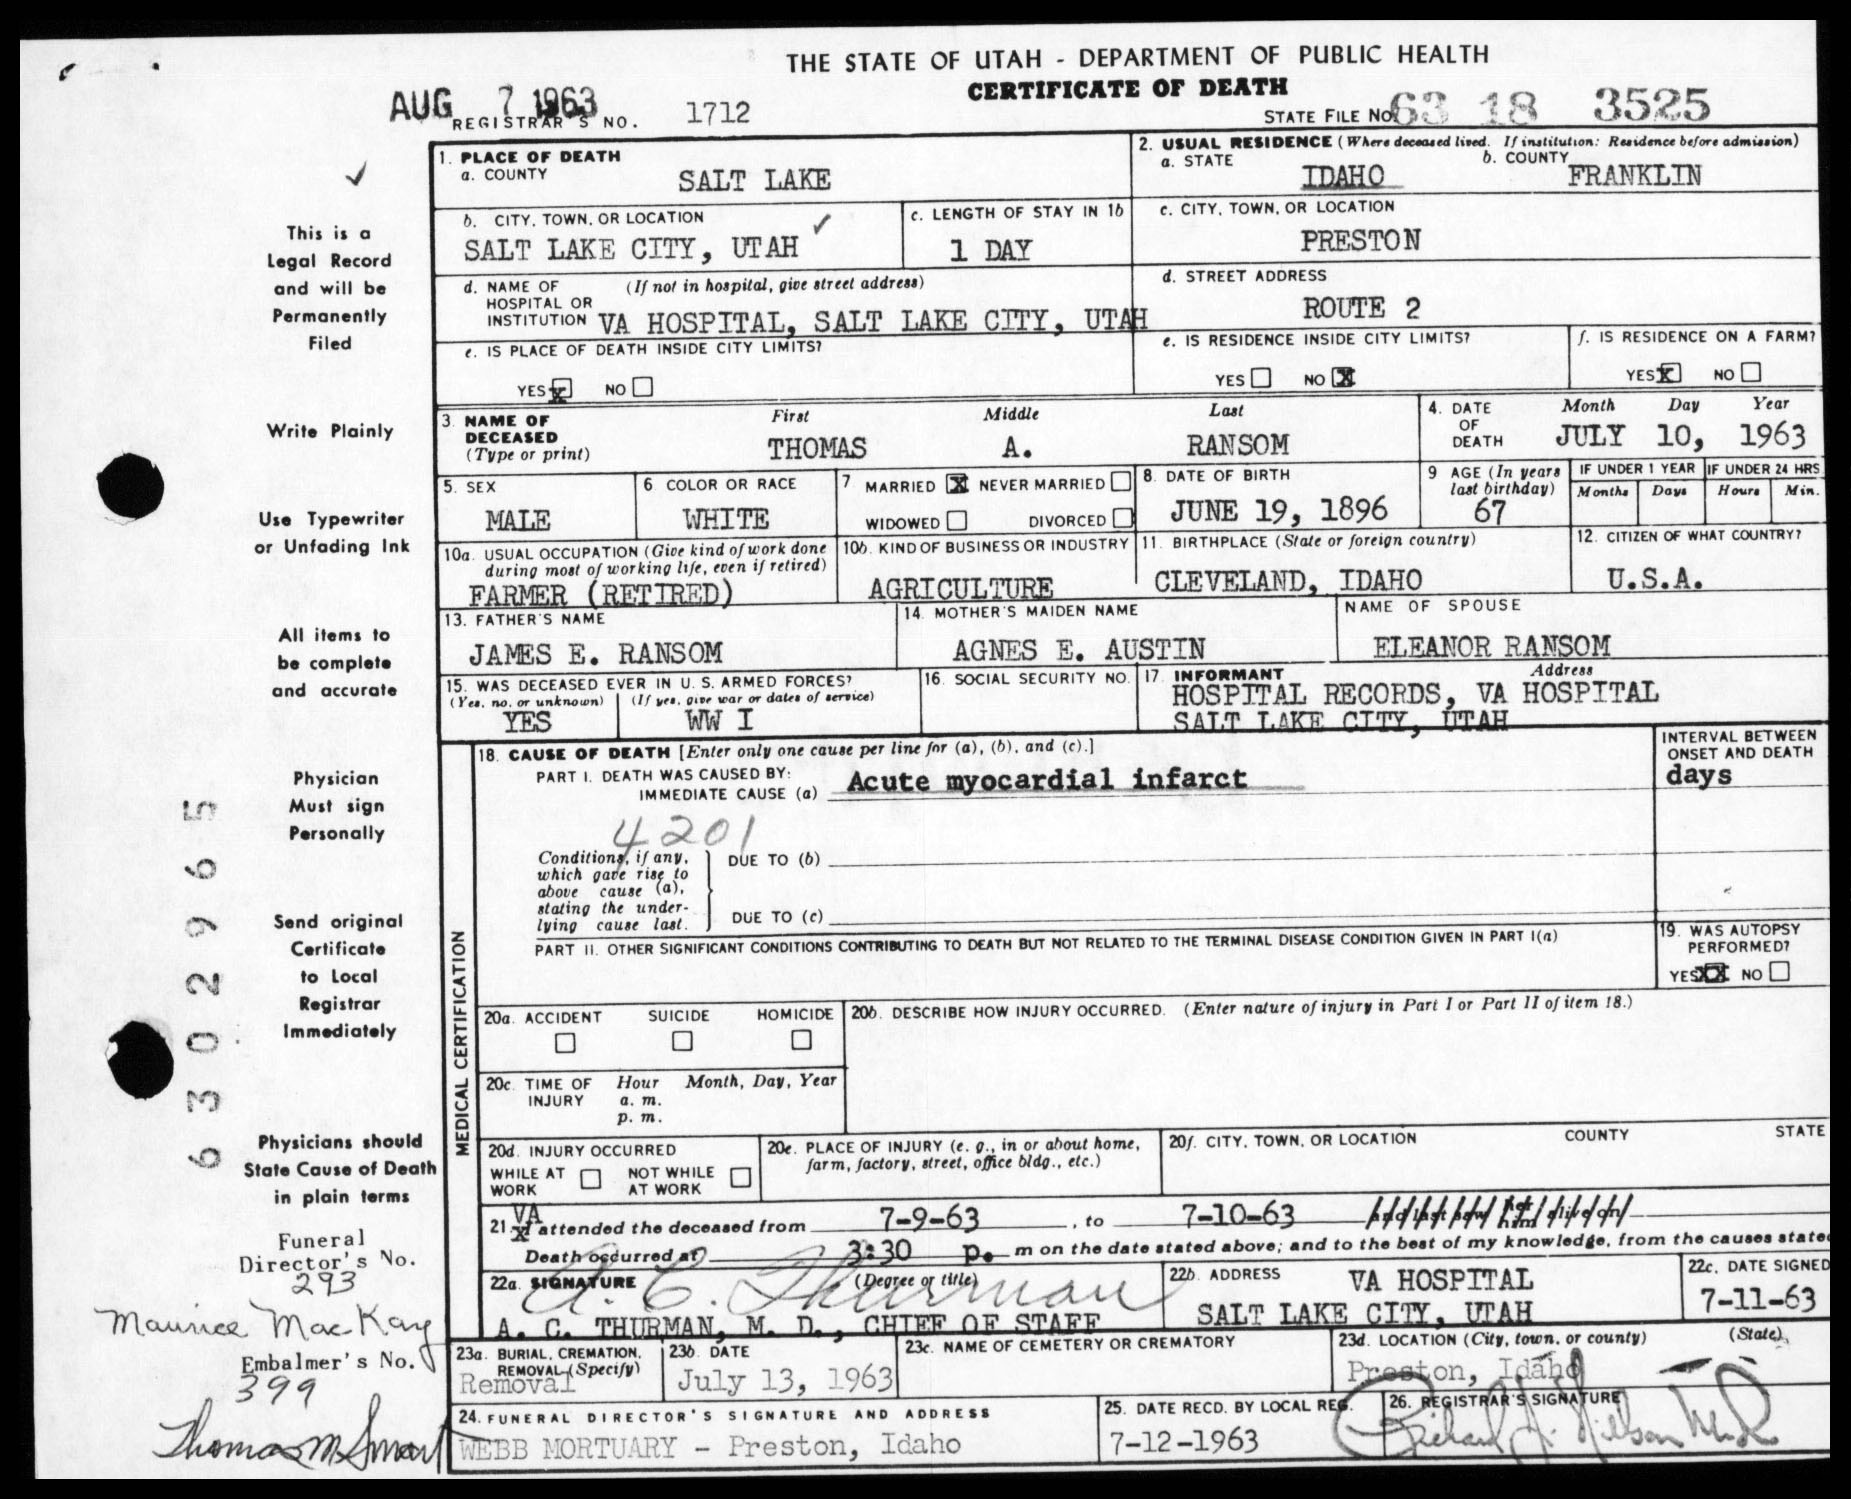 THE STATE OF UTAH - DEPARTMENT OF PUBLIC HEALTH
CERTIFICATE OF DEATH
AUG 7 1963
REGISTRAR'S NO. 1712
STATE FILE NO. 63 18 3525
1. PLACE OF DEATH
a. COUNTY
SALT LAKE
2. USUAL RESIDENCE (Where deceased lived. If institution: Residence before admission)
a. STATE b. COUNTY
IDAHO FRANKLIN
b. CITY, TOWN, OR LOCATION
SALT LAKE CITY, UTAH
c. LENGTH OF STAY IN 1b
1 DAY
c. CITY, TOWN, OR LOCATION
PRESTON
d. NAME OF HOSPITAL OR INSTITUTION (If not in hospital, give street address)
VA HOSPITAL, SALT LAKE CITY, UTAH
d. STREET ADDRESS
ROUTE 2
e. IS PLACE OF DEATH INSIDE CITY LIMITS?
YES X NO
e. IS RESIDENCE INSIDE CITY LIMITS?
YES NO X
f. IS RESIDENCE ON A FARM?
YES X NO
3. NAME OF DECEASED (Type or print)
First Middle Last
THOMAS A. RANSOM
4. DATE OF DEATH
Month Day Year
JULY 10, 1963
5. SEX
MALE
6 COLOR OR RACE
WHITE
7 MARRIED X NEVER MARRIED
WIDOWED DIVORCED
8. DATE OF BIRTH
JUNE 19, 1896
9 AGE (In years last birthday)
67
IF UNDER 1 YEAR
Months Days
IF UNDER 24 HRS.
Hours Min.
10a. USUAL OCCUPATION (Give kind of work done during most of working life, even if retired)
FARMER (RETIRED)
10b. KIND OF BUSINESS OR INDUSTRY
AGRICULTURE
11. BIRTHPLACE (State or foreign country)
CLEVELAND, IDAHO
12. CITIZEN OF WHAT COUNTRY?
U.S.A.
13. FATHER'S NAME
JAMES E. RANSOM
14. MOTHER'S MAIDEN NAME
AGNES E. AUSTIN
NAME OF SPOUSE
ELEANOR RANSOM
15. WAS DECEASED EVER IN U.S. ARMED FORCES?
(Yes, no, or unknown) (If yes, give war or dates of service)
YES WW I
16. SOCIAL SECURITY NO.
17. INFORMANT Address
HOSPITAL RECORDS, VA HOSPITAL
SALT LAKE CITY, UTAH
MEDICAL CERTIFICATION
18. CAUSE OF DEATH [Enter only one cause per line for (a), (b), and (c).]
PART I. DEATH WAS CAUSED BY:
IMMEDIATE CAUSE (a) Acute myocardial infarct
INTERVAL BETWEEN ONSET AND DEATH
days
4201
Conditions, if any, which gave rise to above cause (a), stating the underlying cause last.
DUE TO (b)
DUE TO (c)
PART II. OTHER SIGNIFICANT CONDITIONS CONTRIBUTING TO DEATH BUT NOT RELATED TO THE TERMINAL DISEASE CONDITION GIVEN IN PART I(a)
19. WAS AUTOPSY PERFORMED?
YES XX NO
20a. ACCIDENT SUICIDE HOMICIDE
20b. DESCRIBE HOW INJURY OCCURRED. (Enter nature of injury in Part I or Part II of item 18.)
20c. TIME OF INJURY Hour Month, Day, Year
a. m.
p. m.
20d. INJURY OCCURRED
WHILE AT WORK NOT WHILE AT WORK
20e. PLACE OF INJURY (e. g., in or about home, farm, factory, street, office bldg., etc.)
20f. CITY, TOWN, OR LOCATION COUNTY STATE
21. VA attended the deceased from 7-9-63, to 7-10-63 and last saw her/him alive on
Death occurred at 3:30 p. m on the date stated above; and to the best of my knowledge, from the causes state
22a. SIGNATURE (Degree or title)
A. C. Thurman
A. C. THURMAN, M. D., CHIEF OF STAFF
22b. ADDRESS VA HOSPITAL
SALT LAKE CITY, UTAH
22c. DATE SIGNED
7-11-63
23a. BURIAL, CREMATION, REMOVAL (Specify)
Removal
23b. DATE
July 13, 1963
23c. NAME OF CEMETERY OR CREMATORY
23d. LOCATION (City, town, or county) (State)
Preston, Idaho
24. FUNERAL DIRECTOR'S SIGNATURE AND ADDRESS
WEBB MORTUARY - Preston, Idaho
25. DATE RECD. BY LOCAL REG.
7-12-1963
26. REGISTRAR'S SIGNATURE
This is a
Legal Record
and will be
Permanently
Filed
Write Plainly
Use Typewriter
or Unfading Ink
All items to
be complete
and accurate
Physician
Must sign
Personally
Send original
Certificate
to Local
Registrar
Immediately
Physicians should
State Cause of Death
in plain terms
Funeral
Director's No.
293
Maurice MacKay
Embalmer's No.
399
Thomas M Smart
6302965